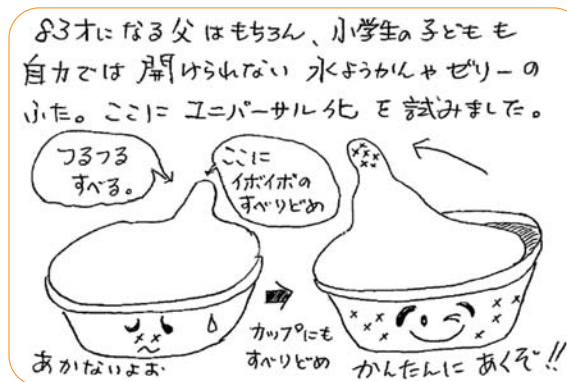 83才になる父はもちろん、小学生の子どもも
自力では開けられない水ようかんやゼリーの
ふた。ここにユニバーサル化を試みました。
つるつる
すべる。
ここに
イボイボの
すべりどめ
カップにも
すべりどめ
あかないよぉ
かんたんにあくぞ!!